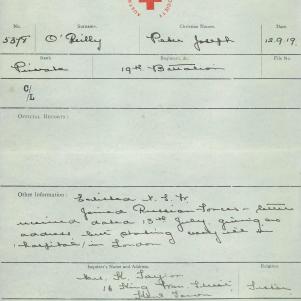 No. Surname. Christian Names. Date.
O'Reilly Peter Joseph 12.9.19.
Rank Regiment, &c. File No.
Private 19th Battalion
C/
/L
OFFICIAL REPORTS:
Other Information: Enlisted N.S.W.
Joined Russian Forces - letter
received dated 13th July giving no
address but stating very ill in
hospital in London
Inquirer's Name and Address. Relation
Mrs. K. Taylor
16 King Street, Sister